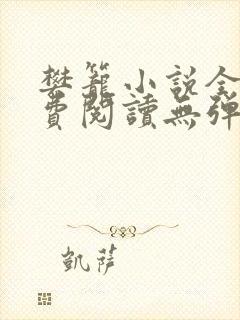 樊籠小說全
費閱讀無彈
凱薩